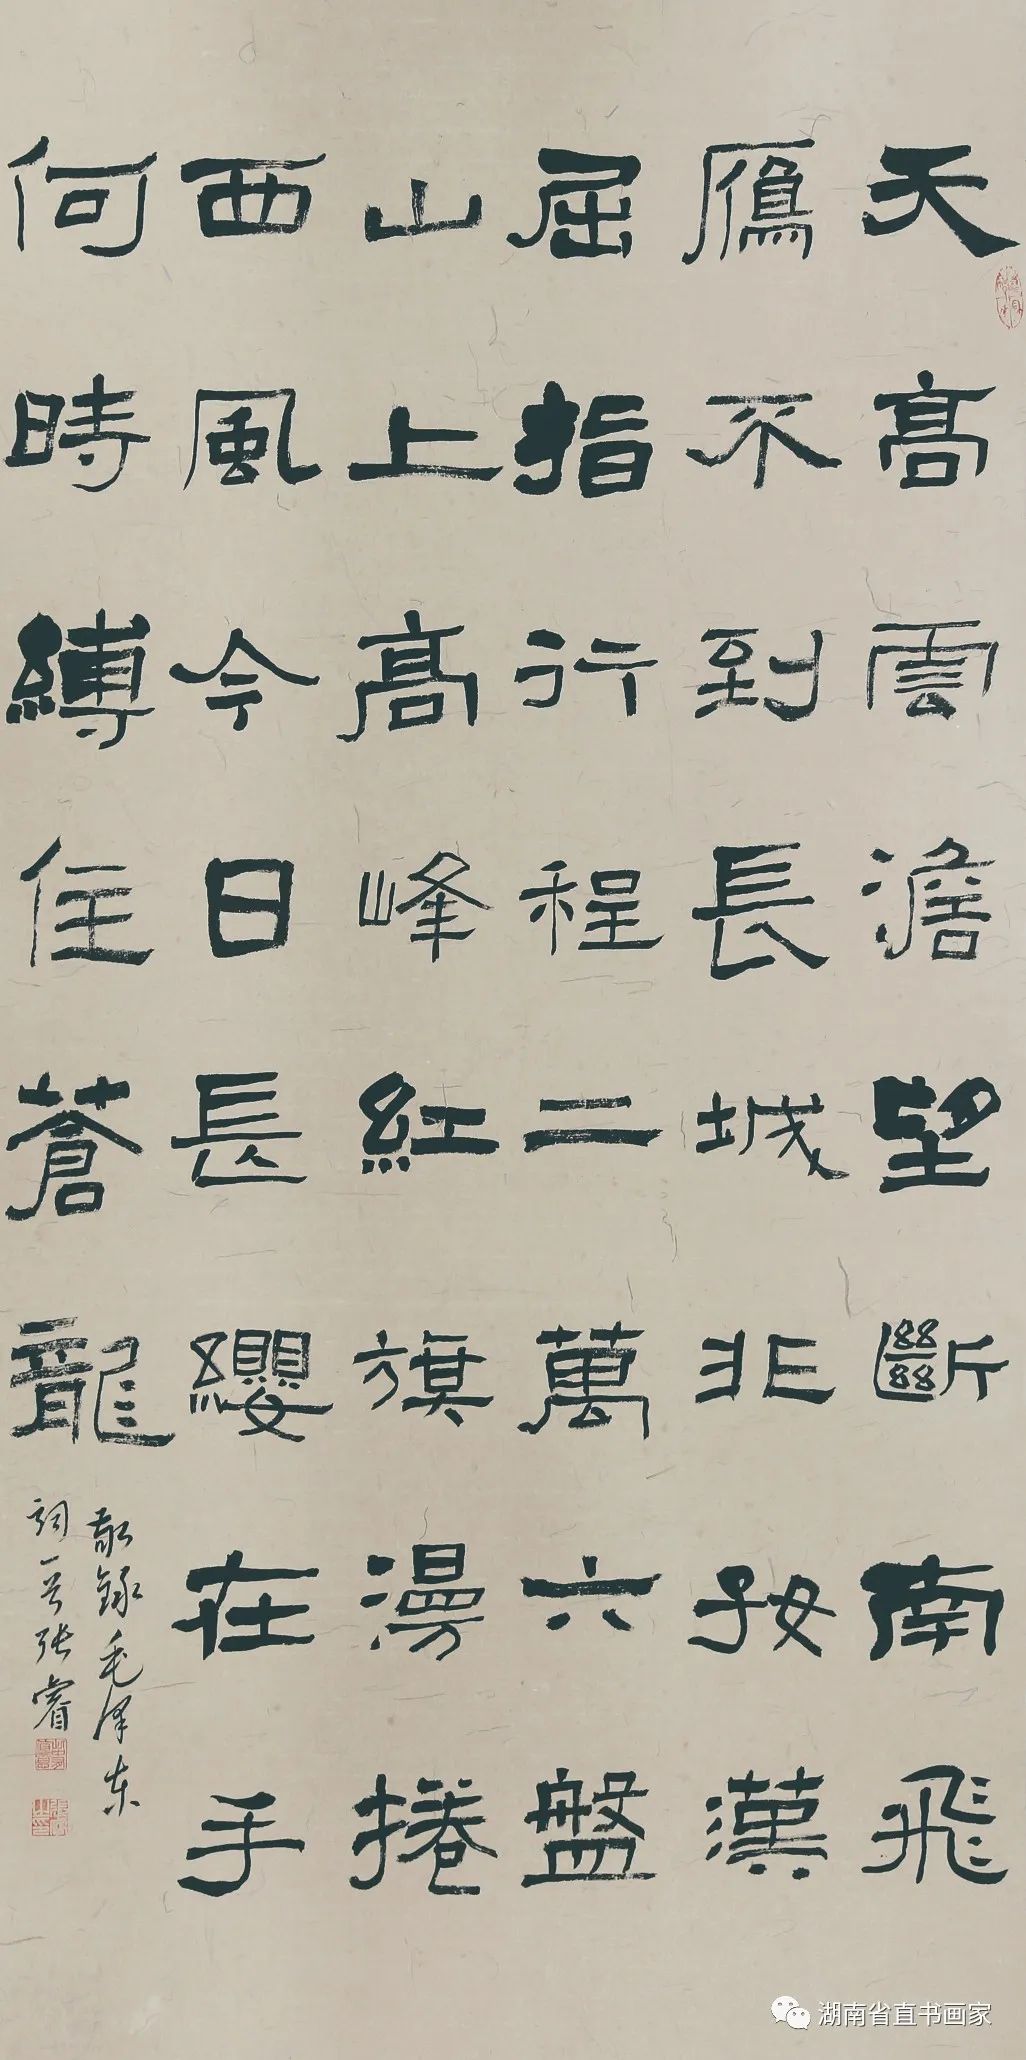 天高雲澹望斷南飛
鴈不到長城非好漢
屈指行程二萬六盤
山上高峰紅旗漫捲
西風今日長纓在手
何時縛住蒼龍
敬錄毛泽东
詞一首张睿
湖南省直书画家